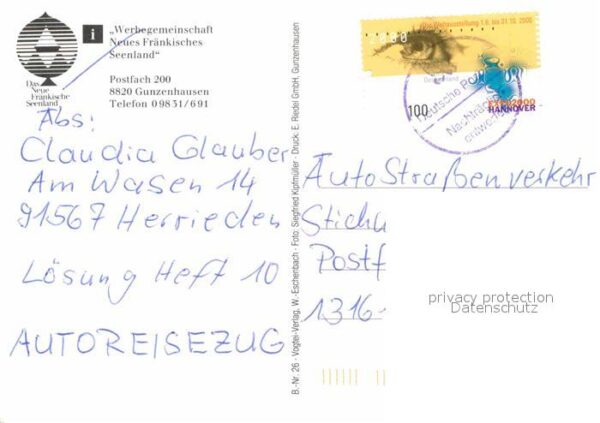 „Werbegemeinschaft
Neues Fränkisches
Seenland"
Das
Neue
Fränkische
Seenland
Postfach 200
8820 Gunzenhausen
Telefon 0 98 31 / 6 91
Abs:
Claudia Glauber
Am Wasen 14
91567 Herrieden
Lösung Heft 10
AUTOREISEZUG
B.-Nr. 26 - Vogtei-Verlag, W.-Eschenbach - Foto: Siegfried Kipfmüller - Druck: E. Riedel GmbH, Gunzenhausen
2000
Die Weltausstellung 1.6. bis 31.10. 2000
Deutschland
100
EXPO2000
HANNOVER
Deutsche Po
Nachträglich
entwe
AutoStraßenverkehr
Stichw
Postf
1316-
privacy protection
Datenschutz